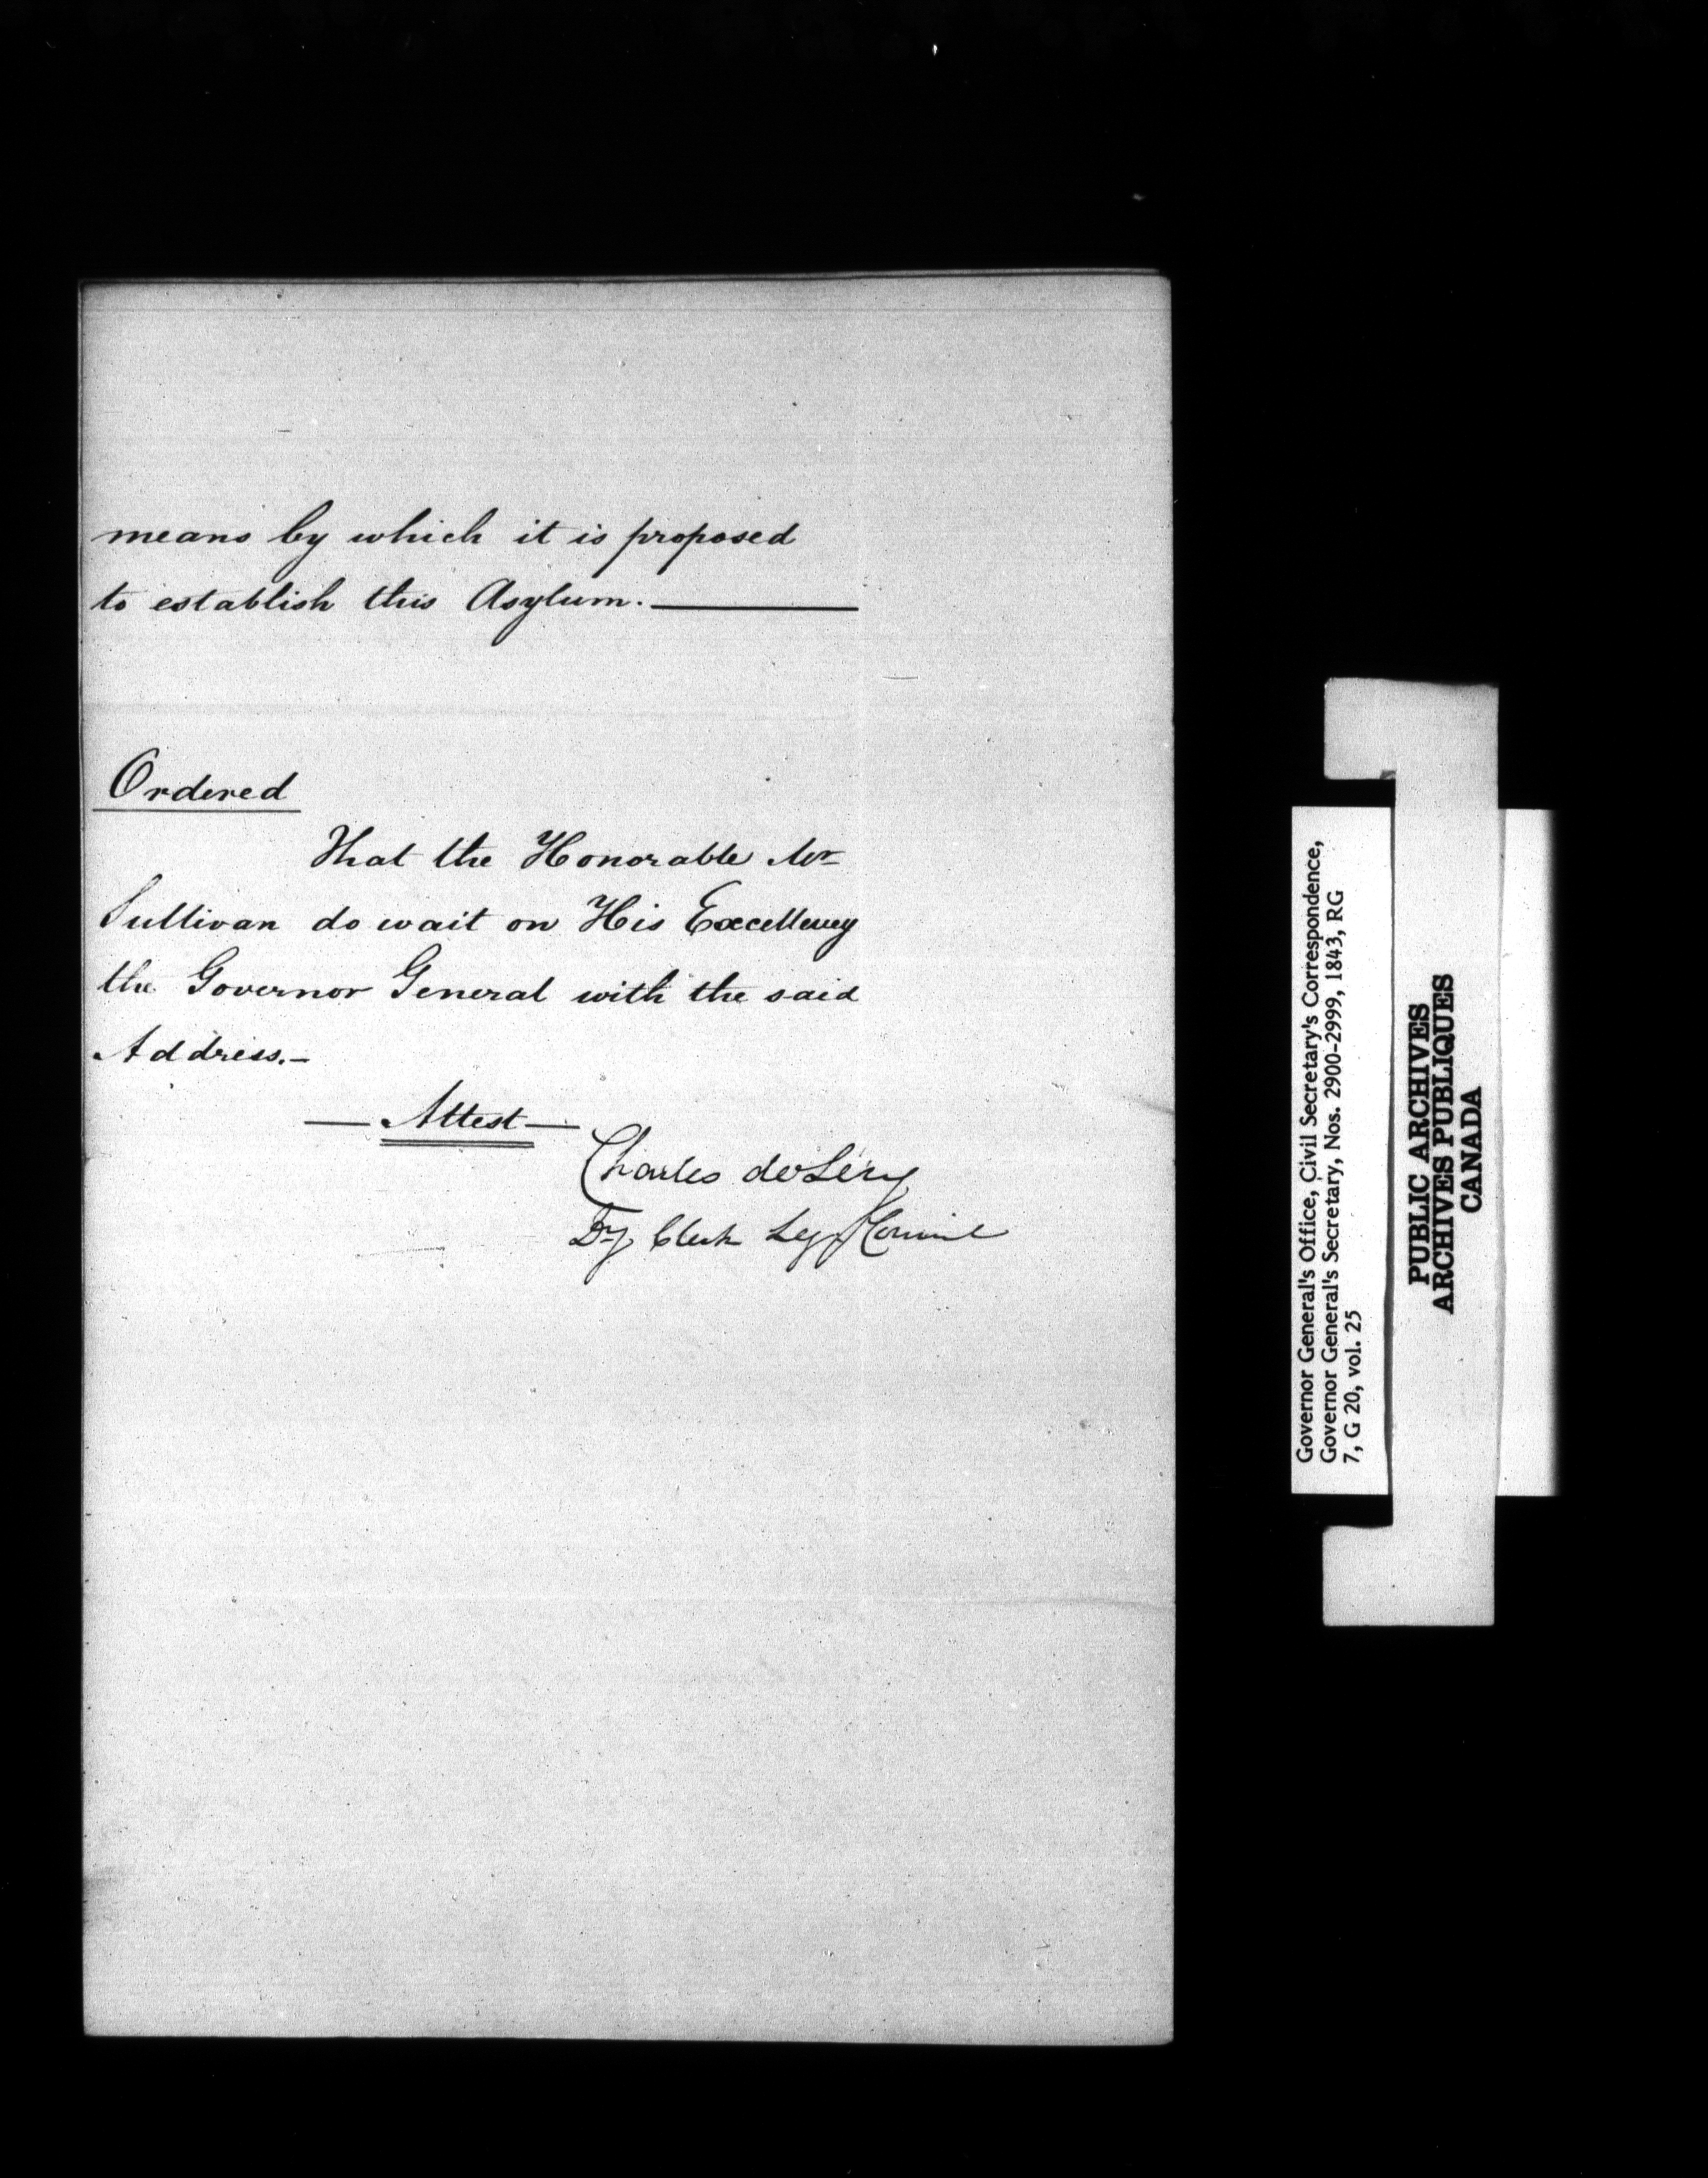 means by which it is proposed
to establish this Asylum. ———
Ordered
That the Honorable Mr
Sullivan do wait on His Excellency
the Governor General with the said
Address.—
— Attest —
Charles deLéry
Dy Clerk Leg Council
Governor General's Office, Civil Secretary's Correspondence,
Governor General's Secretary, Nos. 2900-2999, 1843, RG
7, G 20, vol. 25
PUBLIC ARCHIVES
ARCHIVES PUBLIQUES
CANADA